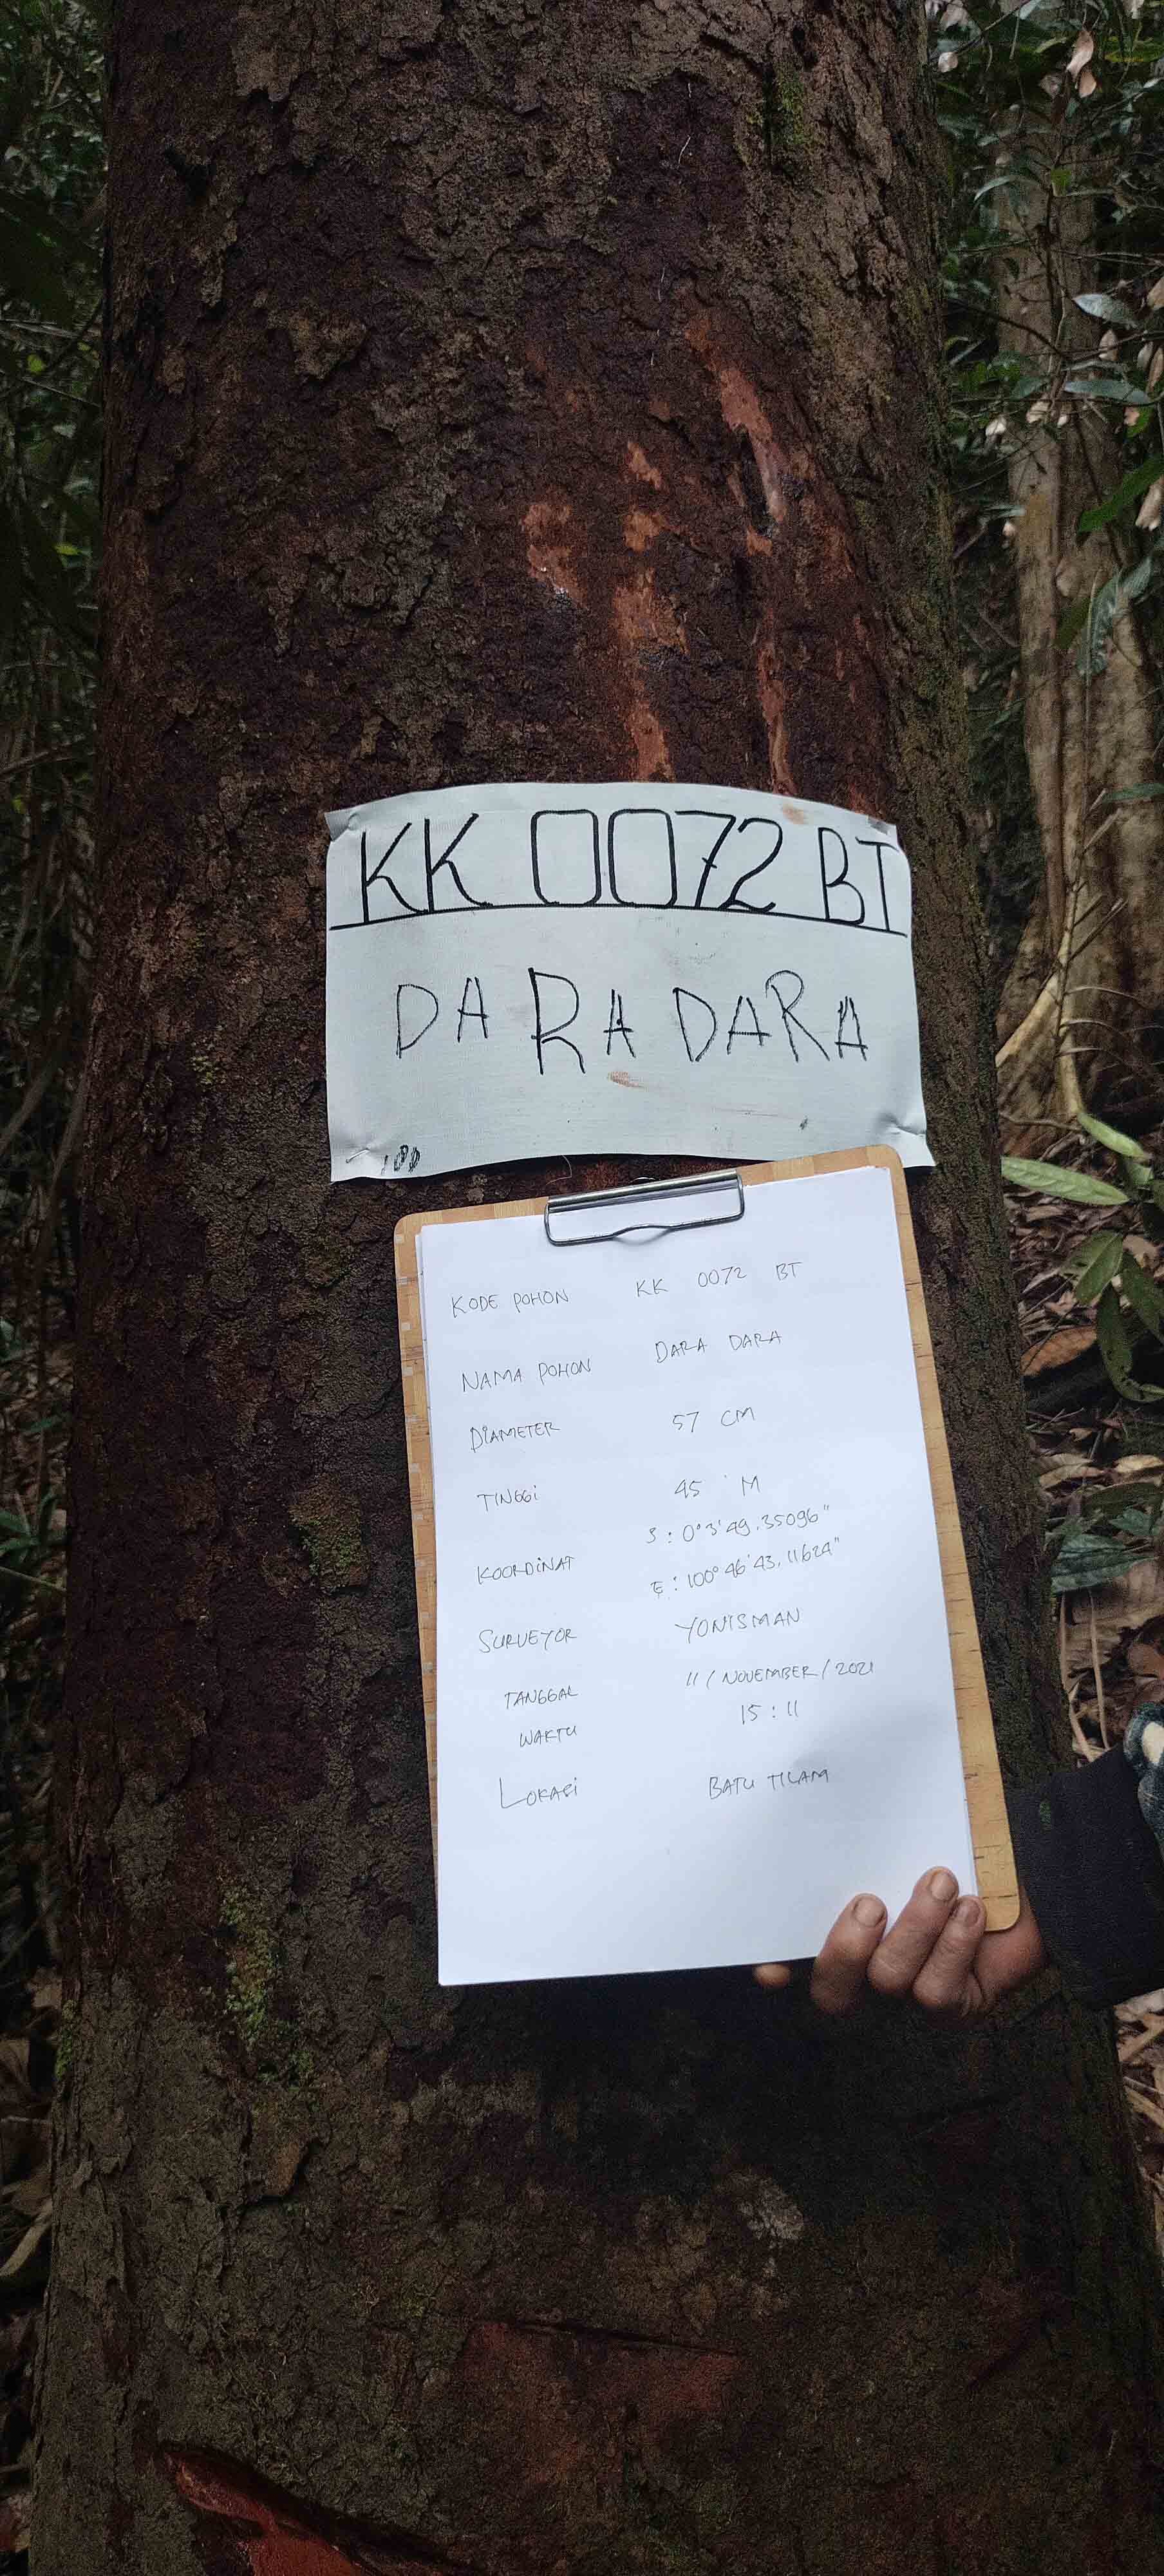 KK 0072 BT
DARA DARA
KODE POHON KK 0072 BT
NAMA POHON DARA DARA
DIAMETER 57 CM
TINGGI 45 M
KOORDINAT S : 0° 3' 49.35096"
E : 100° 46' 43.11624"
SURVEYOR YONISMAN
TANGGAL 11 / NOVEMBER / 2021
WAKTU 15 : 11
LOKASI BATU TILAM